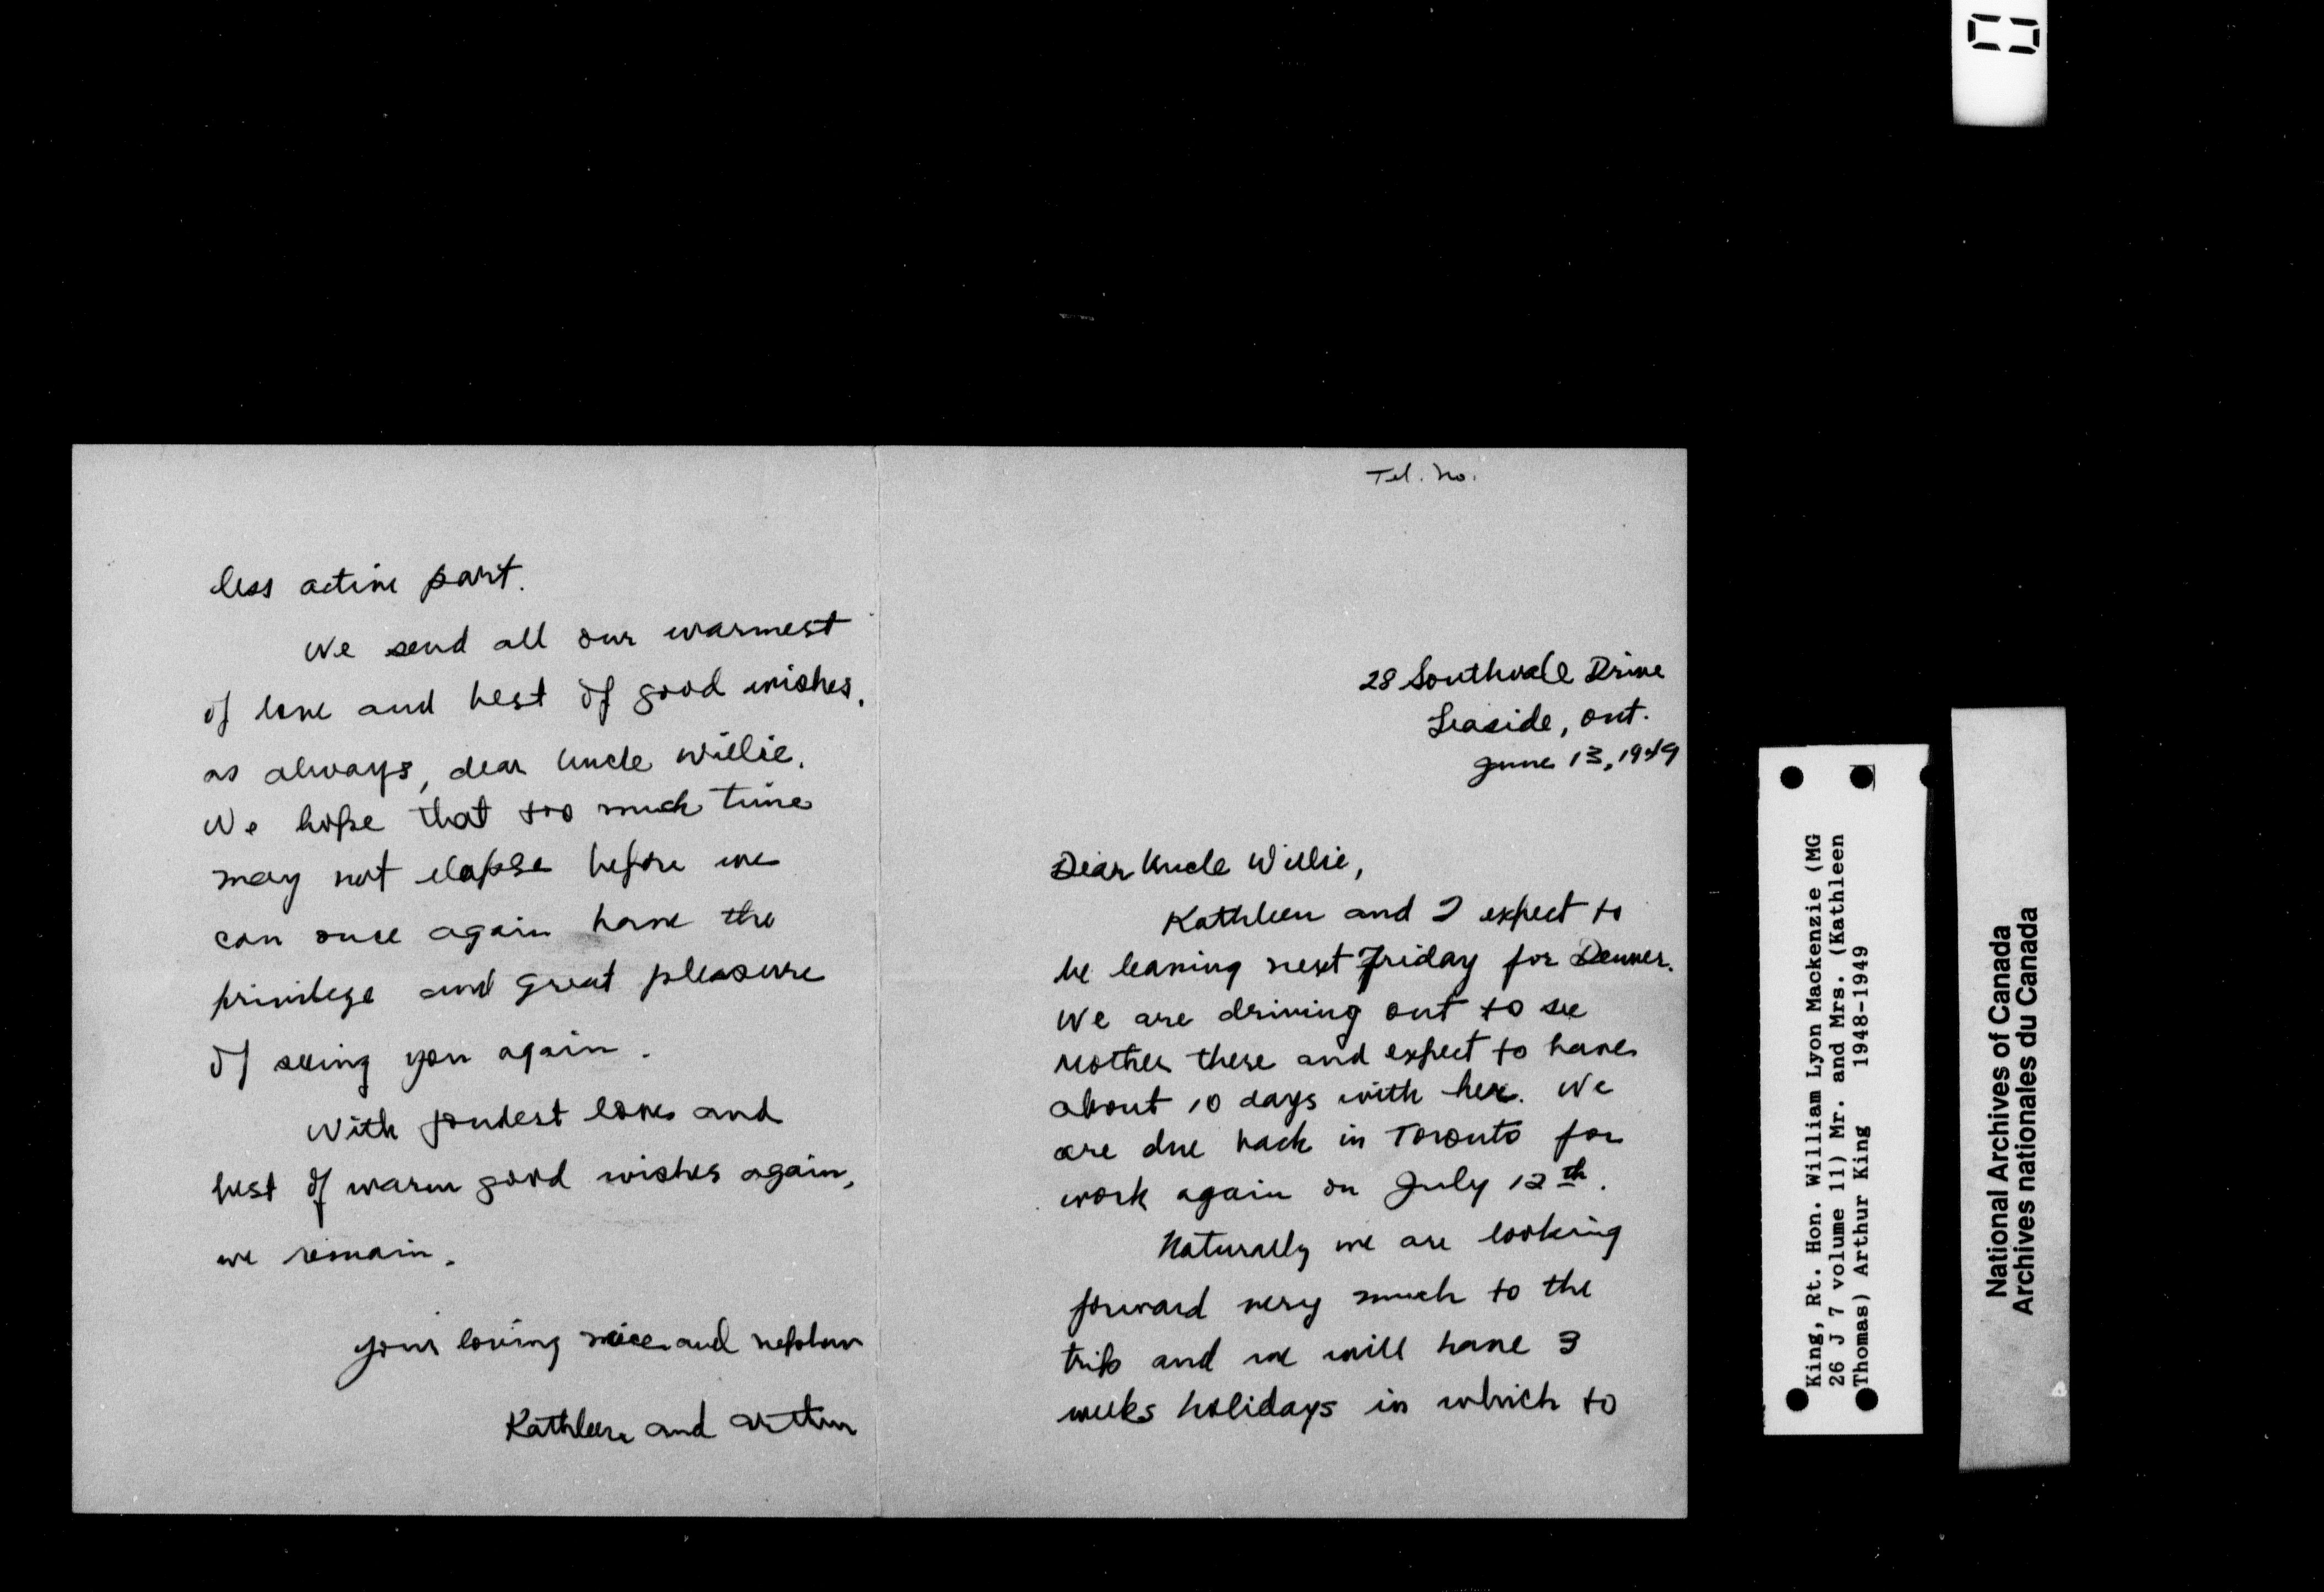 less active part.
We send all our warmest
of love and best of good wishes,
as always, dear Uncle Willie.
We hope that too much time
may not elapse before we
can once again have the
privilege and great pleasure
of seeing you again.
With fondest love and
best of warm good wishes again,
we remain,
your loving niece and nephew
Kathleen and Arthur
Tel. No.
28 Southvale Drive
Leaside, Ont.
June 13, 1949
Dear Uncle Willie,
Kathleen and I expect to
be leaving next Friday for Denver.
We are driving out to see
Mother there and expect to have
about 10 days with her. We
are due back in Toronto for
work again on July 12th.
Naturally we are looking
forward very much to the
trip and we will have 3
weeks holidays in which to
King, Rt. Hon. William Lyon Mackenzie (MG
26 J 7 volume 11) Mr. and Mrs. (Kathleen
Thomas) Arthur King 1948-1949
National Archives of Canada
Archives nationales du Canada